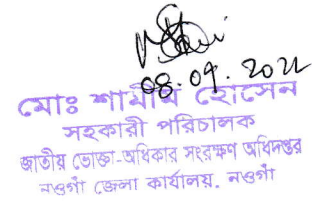 08.09.2022
মোঃ শামীম হোসেন
সহকারী পরিচালক
জাতীয় ভোক্তা-অধিকার সংরক্ষণ অধিদপ্তর
নওগাঁ জেলা কার্যালয়, নওগাঁ